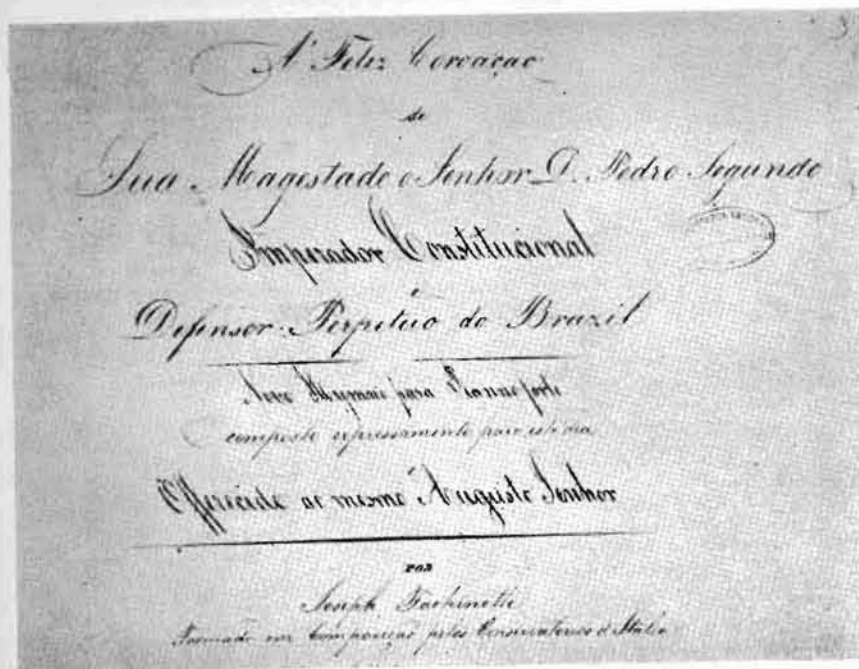 A' Feliz Coroaçao
de
Sua Magestade o Senhor D. Pedro Segundo
Imperador Constitucional
e
Defensor Perpetuo do Brazil
Novo Hymno para Pianno forte
composto expressamente para este dia
Offerecido ao mesmo Augusto Senhor
POR
Joseph Fachinetti
Formado em Composiçao pelos Conservatorios d'Italia